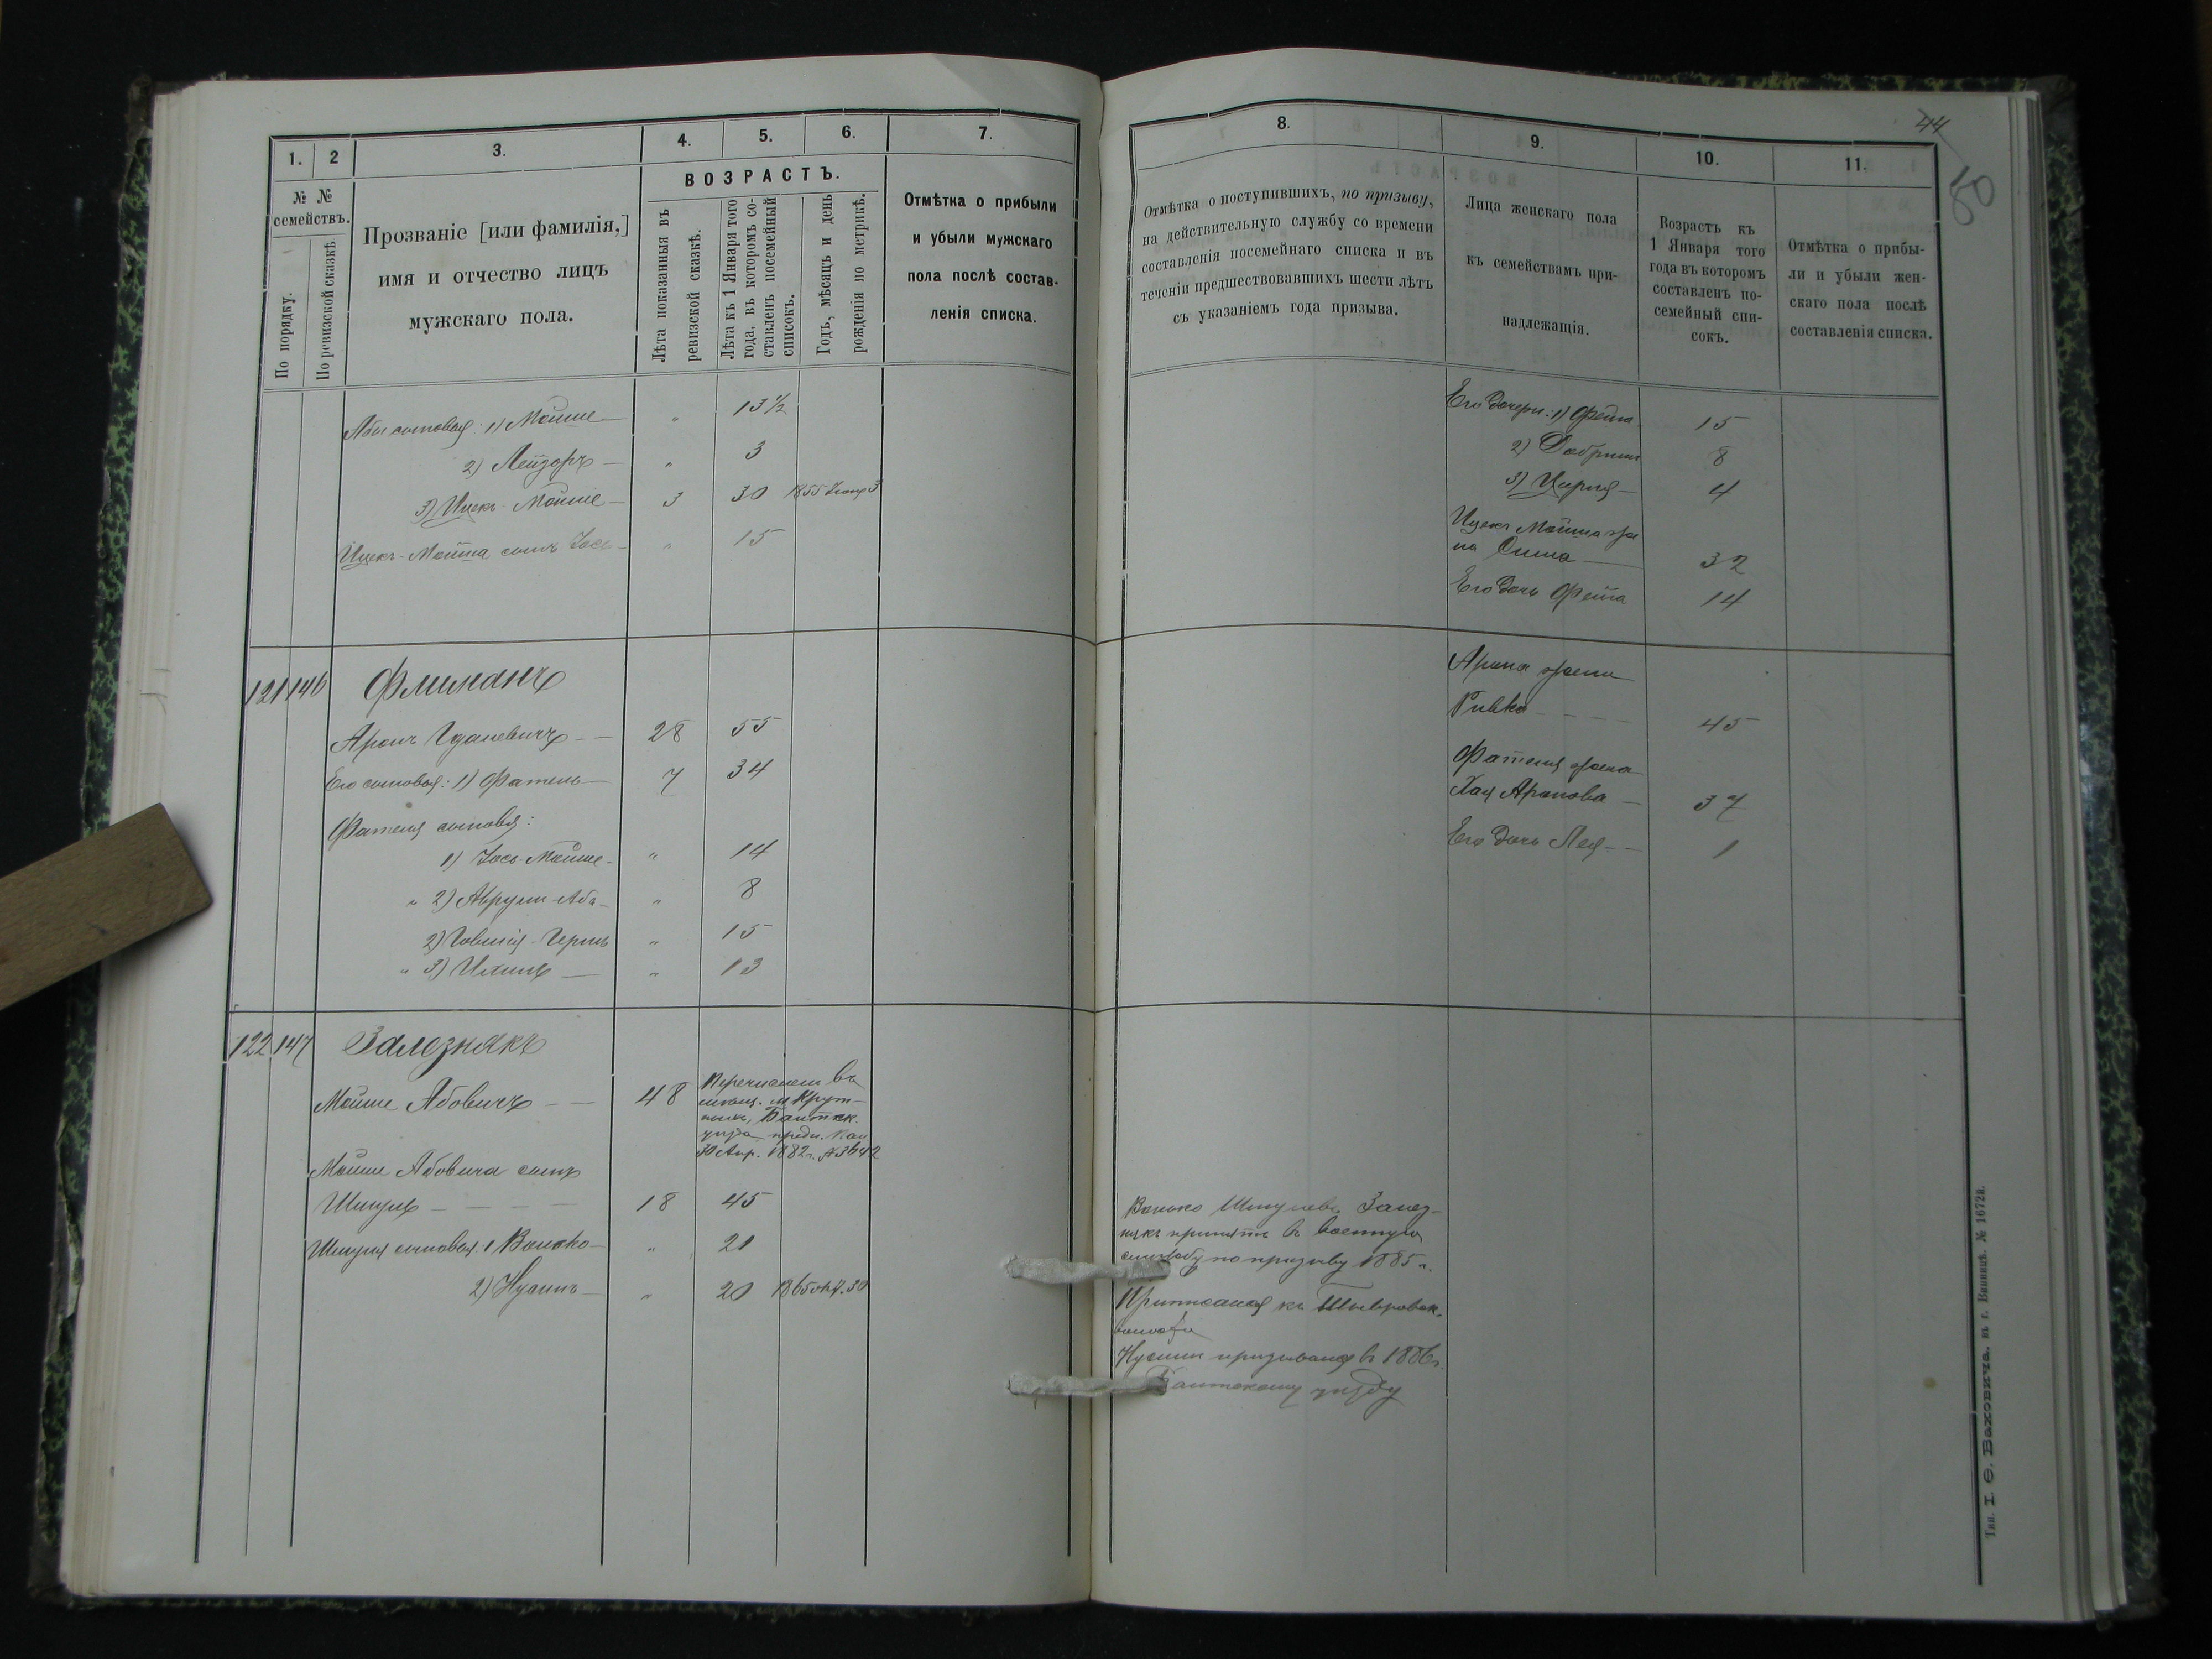 1.
2
3.
4.
5.
6.
7.
№ №
семействъ.
По порядку.
По ревизской сказкѣ.
Прозваніе [или фамилія,]
имя и отчество лицъ
мужскаго пола.
ВОЗРАСТЪ.
Лѣта показанныя въ
ревизской сказкѣ.
Лѣта къ 1 Января того
года, въ которомъ со-
ставленъ посемейный
списокъ.
Годъ, мѣсяцъ и день
рожденія по метрикѣ.
Отмѣтка о прибыли
и убыли мужскаго
пола послѣ состав-
ленія списка.
Абы сыновья: 1) Мойше — „ 13½
2) Лейзоръ — „ 3
3) Ицекъ-Мойше — 3 30 1855 3
Ицекъ-Мойша сынъ Іось — „ 15
121 146 Флиманъ
Аронъ Гдалевичъ — — 28 55
Его сыновья: 1) Фатель — 7 34
Фателя сыновья:
1) Іось-Мойше — „ 14
„ 2) Аврумъ-Аба — „ 8
2) Герш „ 15
„ 3) — „ 13
122 147 Залезнякъ
Мойше Абовичъ — — 48
Перечисленъ въ
мѣщ. м. Крут-
ыхъ, Балтск.
уѣзда предп. Каз
30 Апр. 1882 г. № 3642
Мойше Абовича сынъ
Шмуль — — — — 18 45
Шмуля сыновья: 1 Волько — „ 21
2) Нусинъ — „ 20 1865 окт. 30
44
50
8.
9.
10.
11.
Отмѣтка о поступившихъ, по призыву,
на дѣйствительную службу со времени
составленія посемейнаго списка и въ
теченіи предшествовавшихъ шести лѣтъ
съ указаніемъ года призыва.
Лица женскаго пола
къ семействамъ при-
надлежащія.
Возрастъ къ
1 Января того
года въ которомъ
составленъ по-
семейный спи-
сокъ.
Отмѣтка о прибы-
ли и убыли жен-
скаго пола послѣ
составленія списка.
Его дочери: 1) Фейга 15
2) Добриш 8
3) Цирля — 4
Ицекъ Мойша же
на Сима — 32
Его дочь Фейга 14
Арона жена
Ривка — — — 45
Фателя жена
Хая Аронова — 37
Его дочь Лея — — 1
Волько Шмулевъ Залез-
някъ принятъ въ военную
службу по призыву 1885 г.
Приписанъ къ Тывровск.
волости
Нусинъ призывался въ 1886 г.
Балтскому уѣзду
Тип. І. Ѳ. Баховича, въ г. Винницѣ. № 1672в.